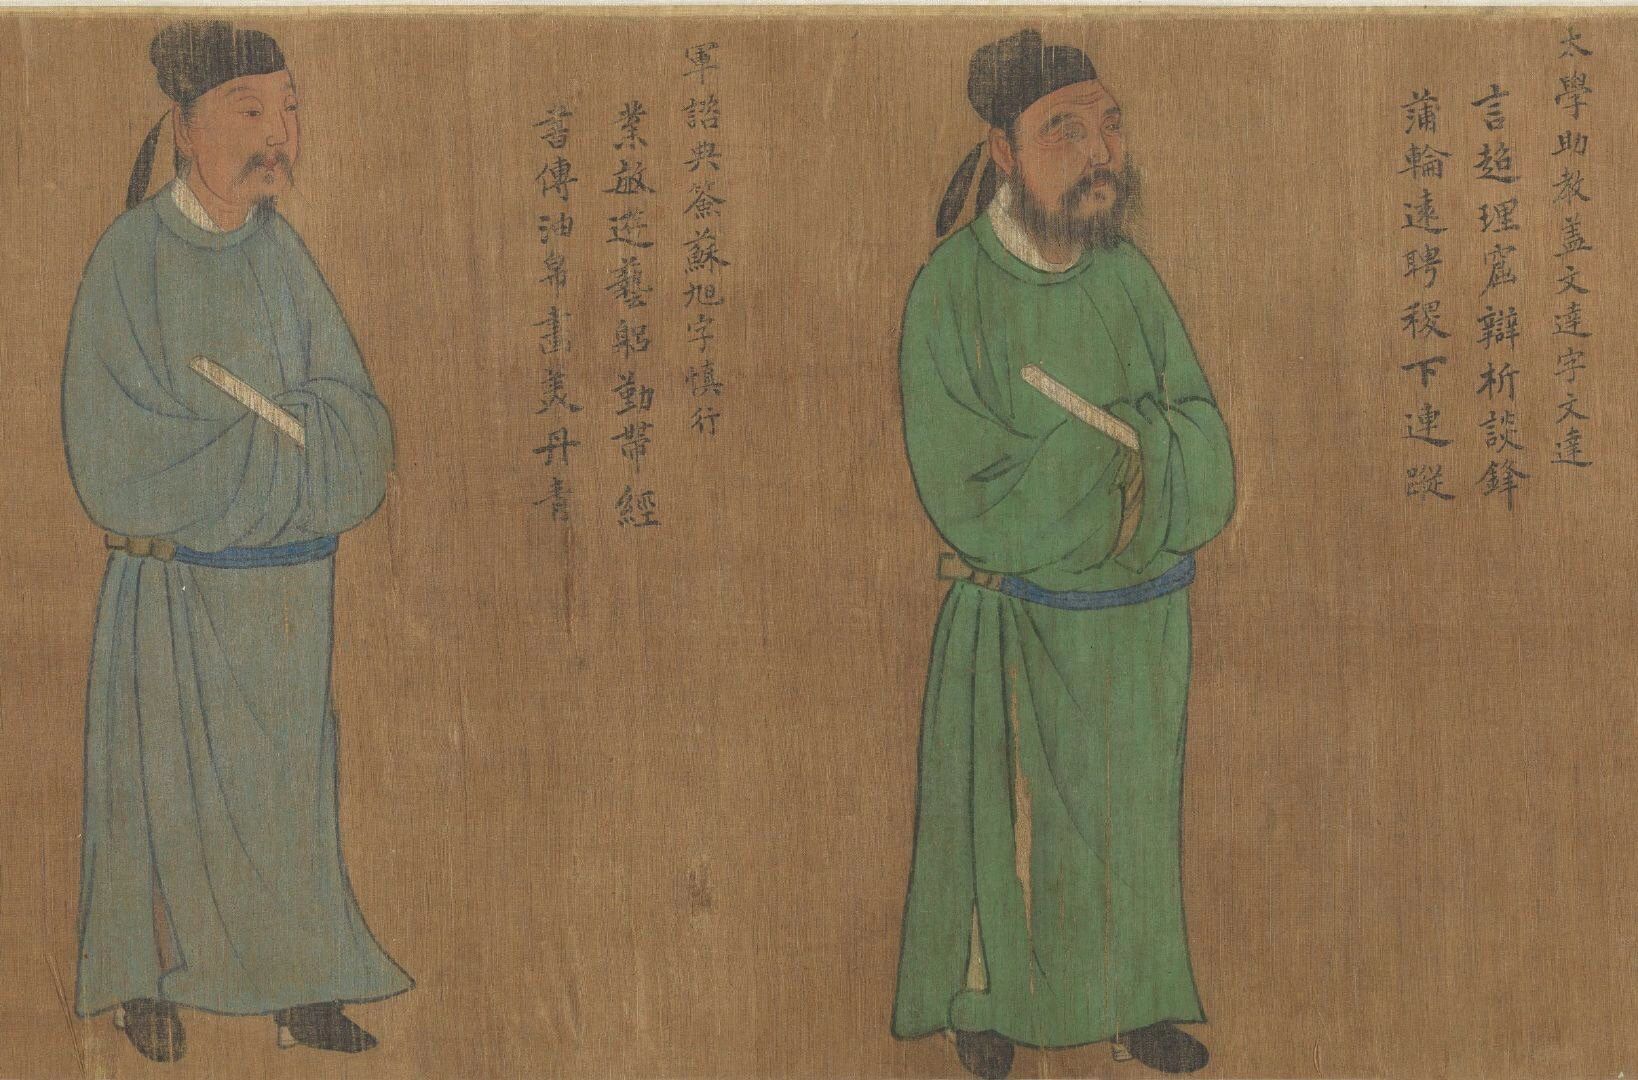 太學助教盖文達字文達
言超理窟辯析談鋒
蒲輪遠聘稷下連蹤
軍諮典簽蘇旭字慎行
業敏遊藝躬勤帶經
書傳油帛畫美丹青